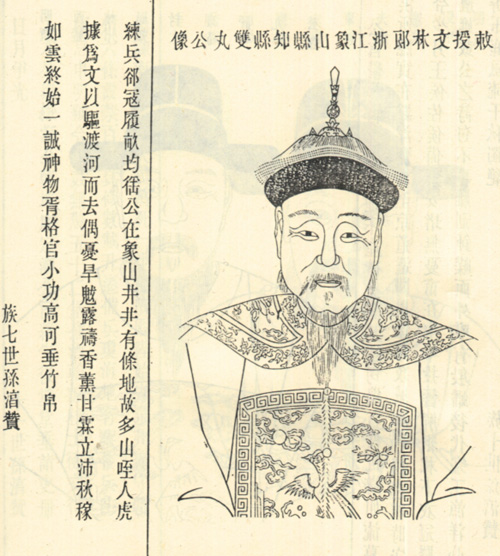 敕授文林郎浙江象山縣知縣雙丸公像
練兵郤冦履畝均徭公在象山井井有條地故多山咥人虎
據爲文以驅渡河而去偶憂旱魃露禱香薰甘霖立沛秋稼
如雲終始一誠神物胥格官小功高可垂竹帛
族七世孫湻贊